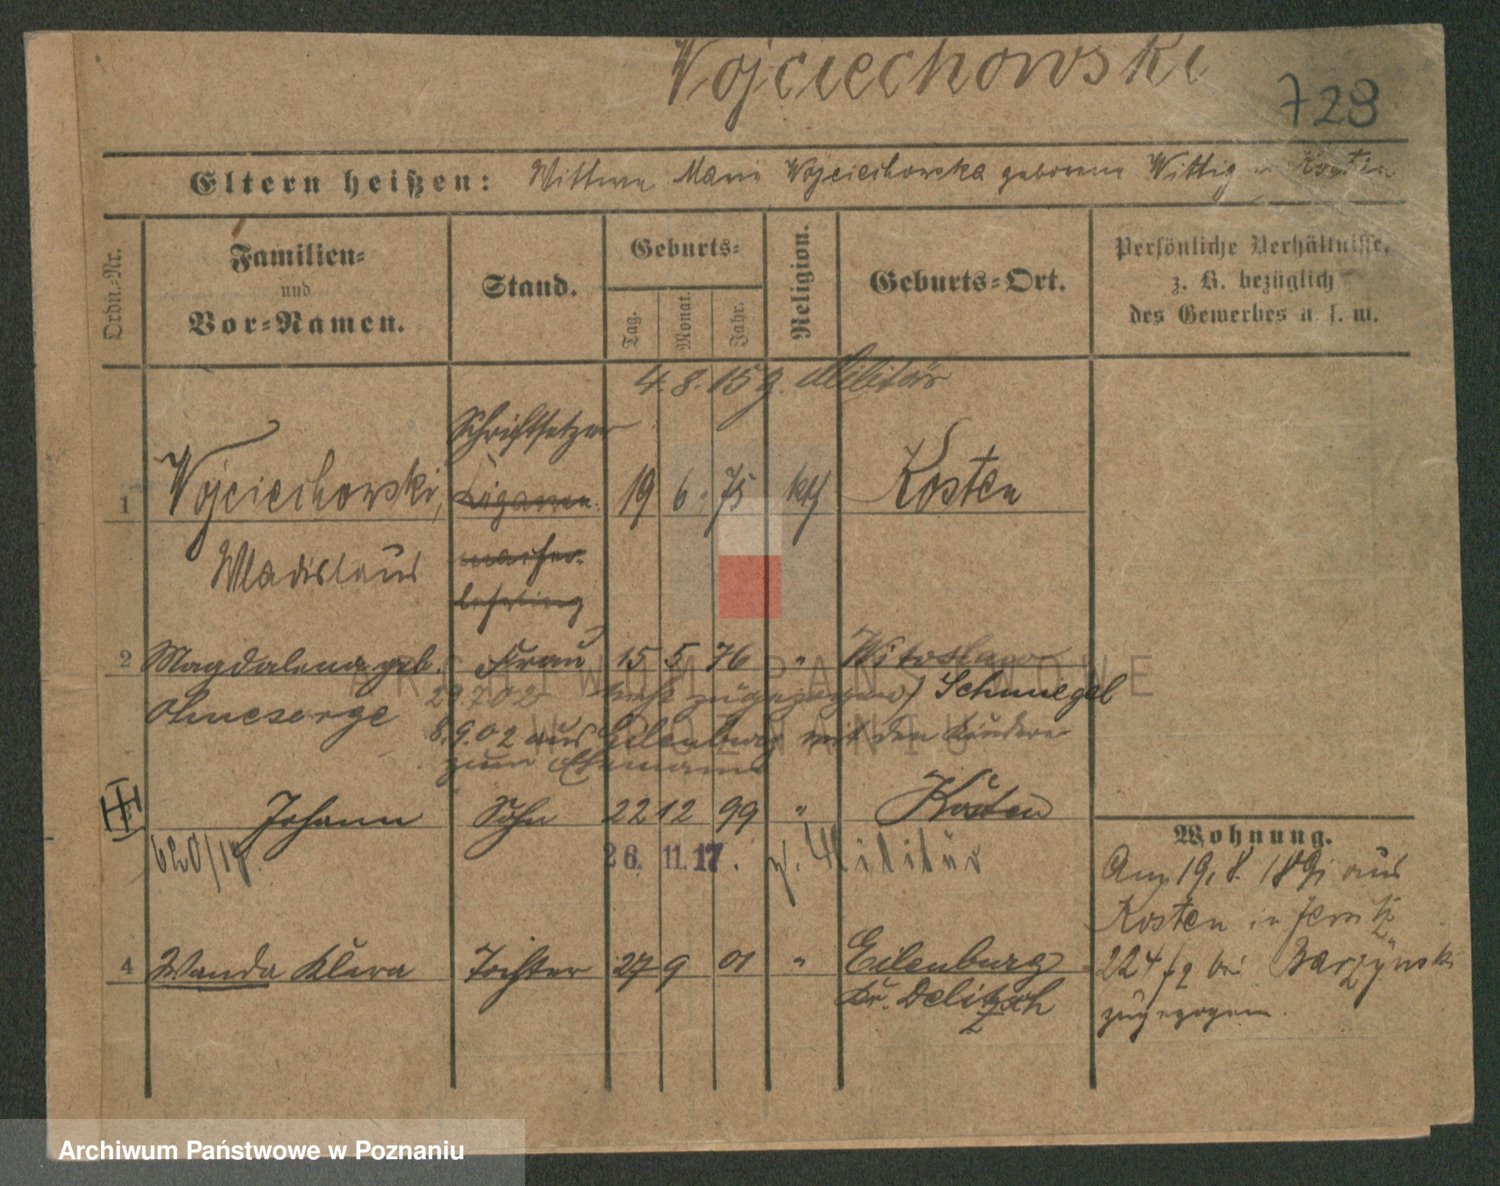 Wojciechowski
728
Eltern heißen: Wittwe Marie Wojciechowska geborene Wittig in Kosten
Ordn.-Nr.
Familien- und Vor-Namen.
Stand.
Geburts-
Tag.
Monat.
Jahr.
Religion.
Geburts-Ort.
Persönliche Verhältnisse, z. B. bezüglich des Gewerbes u. s. w.
4. 8. 15 z. Militär
Schriftsetzer
1 Wojciechowski, Cigarren- 19 6. 75 kth Kosten
Wladislaus macher-
lehrling
2 Magdalena geb. Frau 15 5 76 "
Ohnesorge 29.7.02 zugezogen) Schmiegel
8.9.02 aus Eilenburg mit den Kindern
zum Ehemann
Johann Sohn 22 12 99 " Kosten
620/17 26. 11. 17. z. Militär
4 Wanda Klara Tochter 27 9 01 " Eilenburg
Kr. Delitzsch
Wohnung.
Am 19.8. 189 aus
Kosten in Jersitz
224 bei Barzynski
zugezogen.
ARCHIWUM PAŃSTWOWE
W POZNANIU
Archiwum Państwowe w Poznaniu